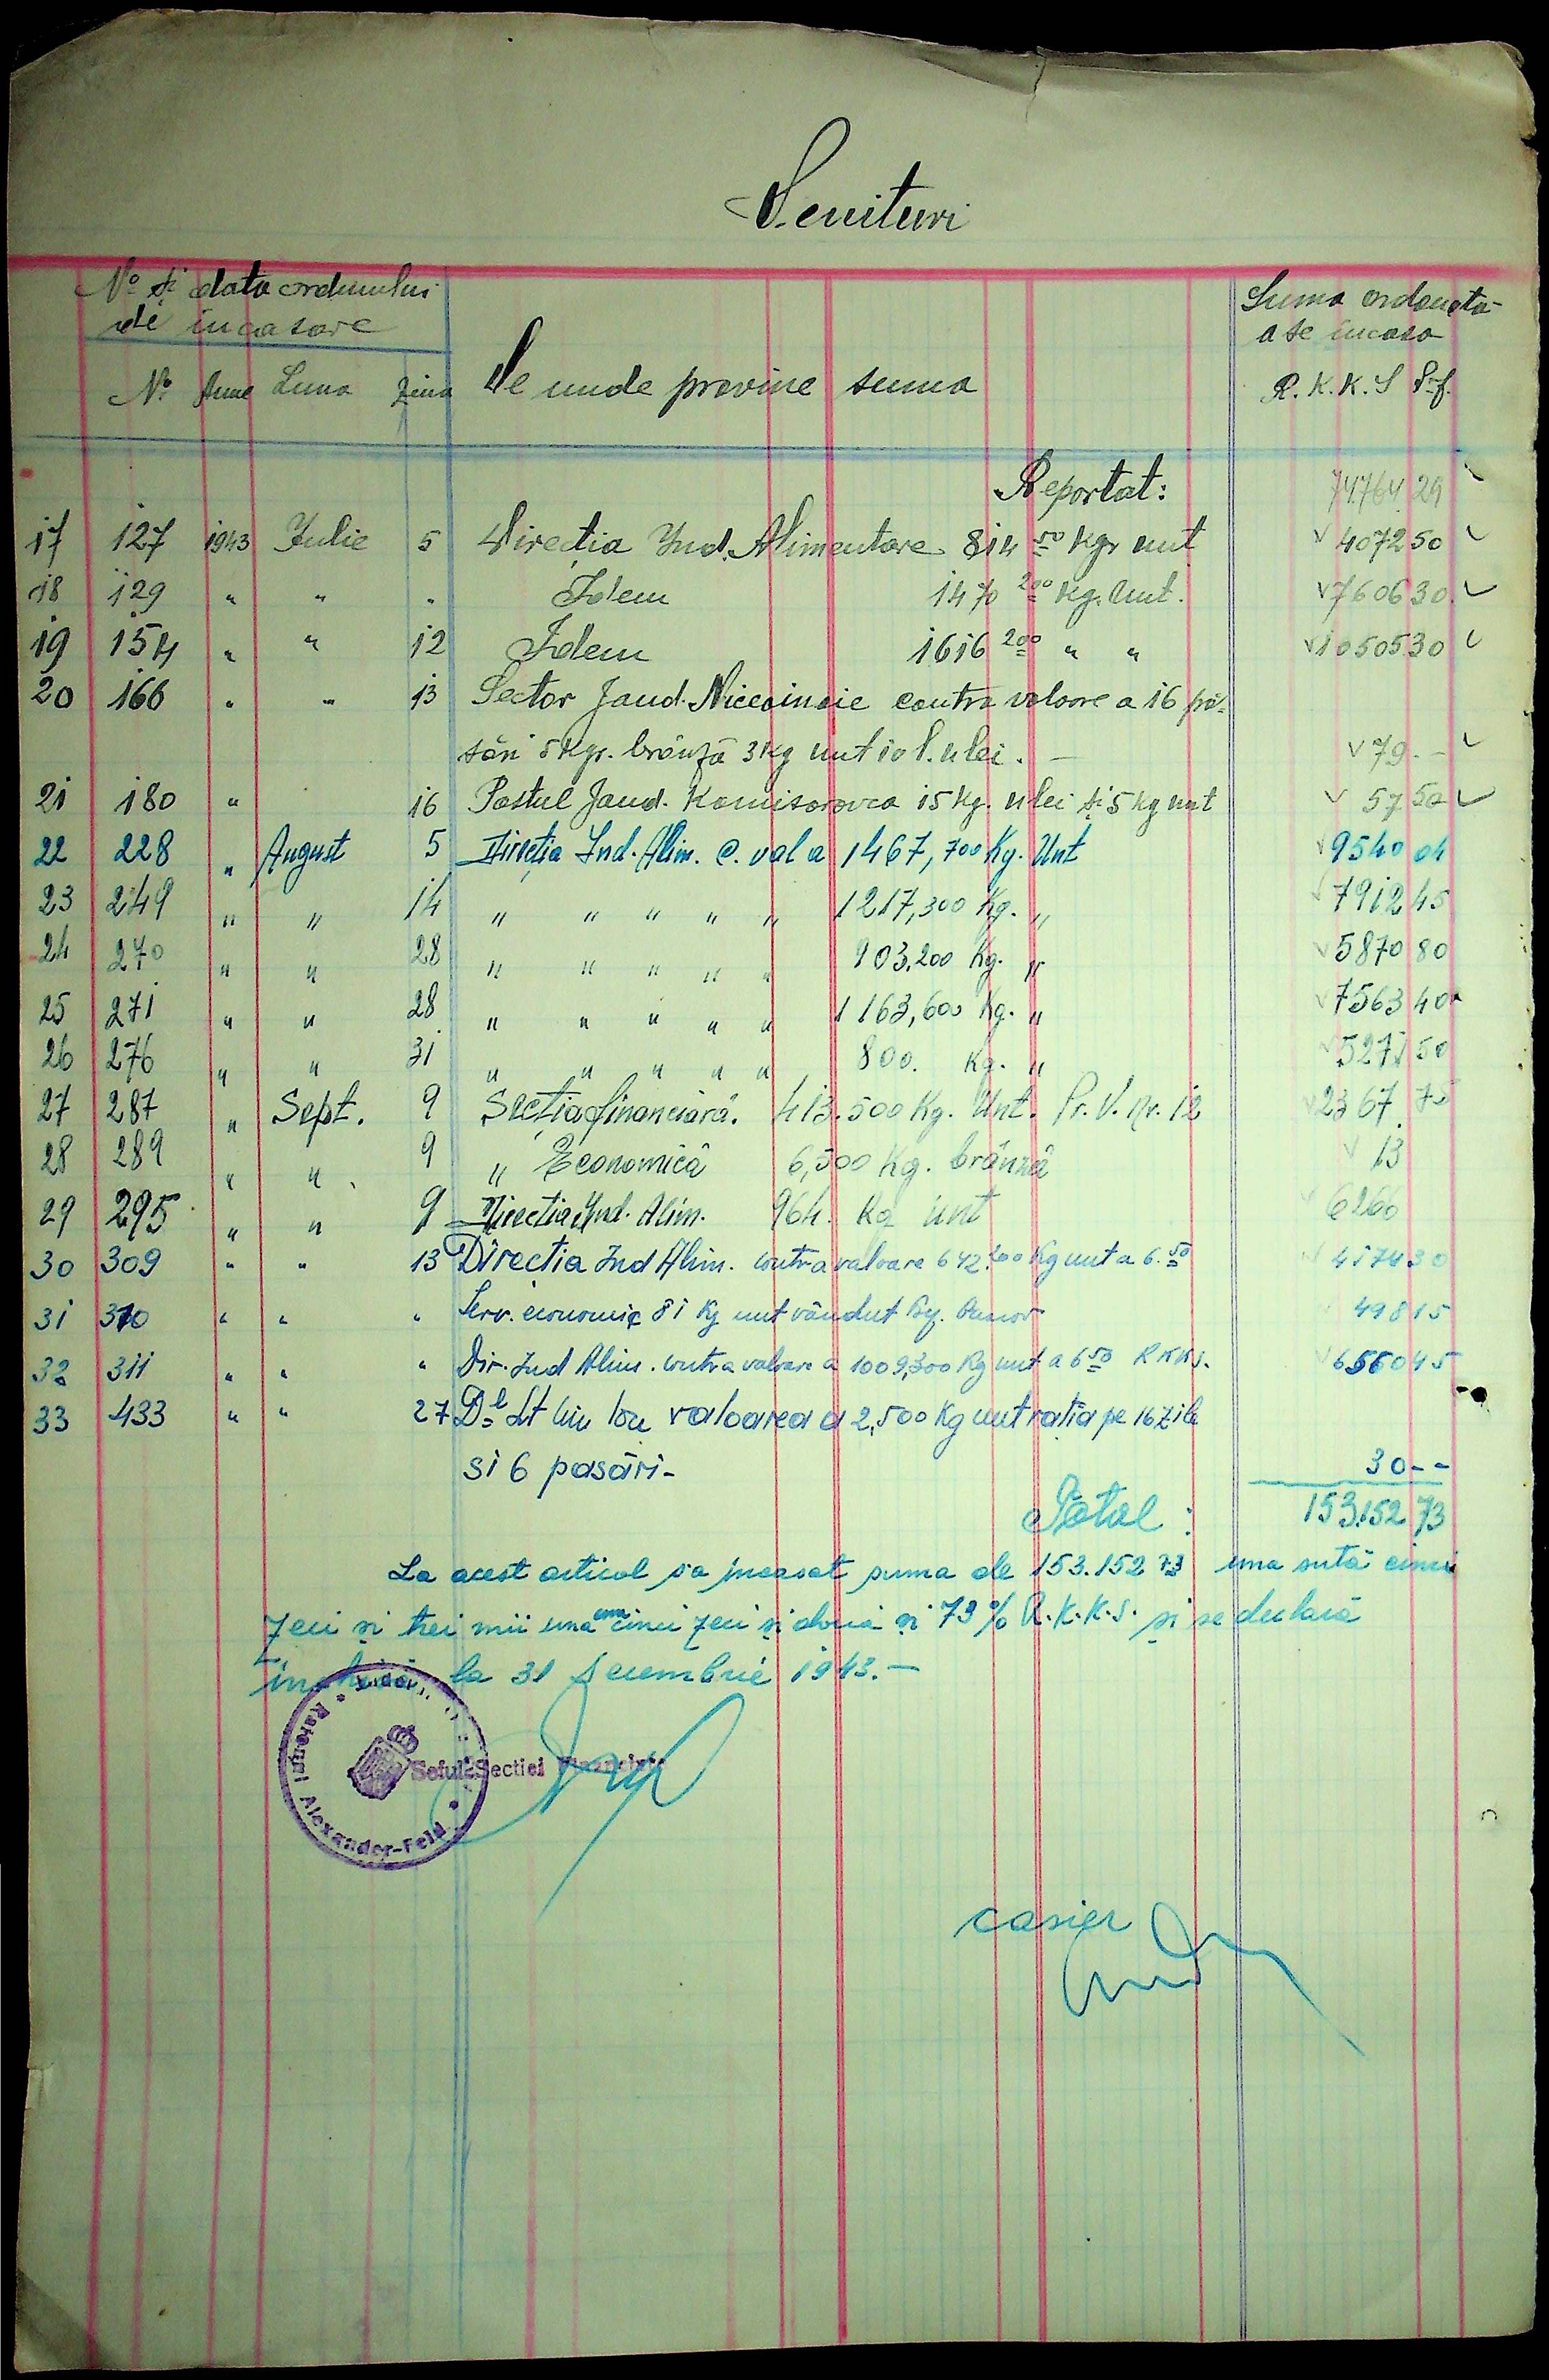 Venituri
No și data ordinului de incasare
No Anul Luna Ziua
De unde provine suma
Suma ordonata a se incasa
R.K.K.S Pf.
Reportat: 74.764 29
17 127 1943 Iulie 5 Directia Ind. Alimentare 814 50 Kgr unt 4072 50
18 129 " " " Idem 1470 200 Kg. Unt. 7606 30
19 154 " " 12 Idem 1616 200 " " 10505 30
20 166 " " 13 Sector Jand. contra valoare a 16 pă-
sări 5 Kgr. brânză 3 Kg unt 10 l. ulei. — 79. —
21 180 " 16 Postul Jand. Komisarovca 15 Kg. ulei și 5 Kg unt 57 50
22 228 " August 5 Direcția Ind. Alim. C. val a 1467,700 Kg. Unt 9540 04
23 249 " " 14 " " " " " 1217,300 Kg. " 7912 45
24 270 " " 28 " " " " " 903,200 Kg. " 5870 80
25 271 " " 28 " " " " " 1163,600 Kg. " 7563 40
26 276 " " 31 " " " " " 800. Kg. " 5271 50
27 287 " Sept. 9 Secția financiară. 413.500 Kg. Unt. Pr. V. nr. 12 2367. 75
28 289 " " 9 " Economică 6,500 Kg. brânză 13
29 295 " " 9 Directia Ind. Alim. 964. Kg unt 6266
30 309 " " 13 Directia Ind Alim. contra valoare 642.200 Kg unt a 6.50 4174 30
31 310 " " " Serv. economic 81 Kg unt vândut 498 15
32 311 " " " Dir. Ind Alim. contra valoare a 1009,300 Kg unt a 6 50 RKKS. 6560 45
33 433 " " 27 Dl Lt valoarea a 2,500 Kg unt ratia pe 16 zile
si 6 pasări- 30--
Total: 153.152 73
La acest articol s'a incasat suma de 153.152 73 una sută cinci
zeci și trei mii una cinci zeci și două și 73% R.K.K.S. și se declară
închis la 31 Decembrie 1943.—
Raiongl Alexander-Feld
Seful Sectiei Financiare
casier